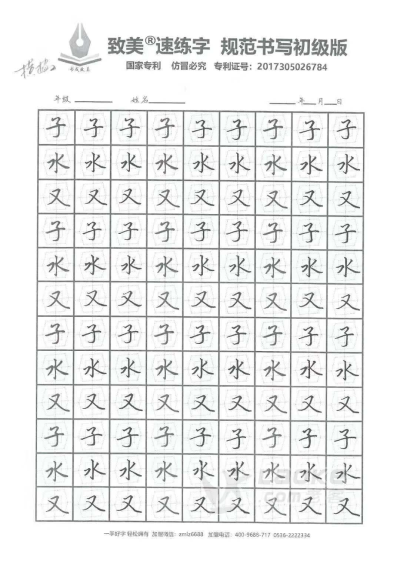 致美®速练字 规范书写初级版
国家专利 仿冒必究 专利证号：2017305026784
横撇
年级 姓名 年 月 日
子 子 子 子 子 子 子 子 子
水 水 水 水 水 水 水 水 水
又 又 又 又 又 又 又 又 又
子 子 子 子 子 子 子 子 子
水 水 水 水 水 水 水 水 水
又 又 又 又 又 又 又 又 又
子 子 子 子 子 子 子 子 子
水 水 水 水 水 水 水 水 水
又 又 又 又 又 又 又 又 又
子 子 子 子 子 子 子 子 子
水 水 水 水 水 水 水 水 水
又 又 又 又 又 又 又 又 又
一手好字 轻松拥有 加盟微信：xmlz6688 加盟电话：400-9685-717 0536-2222334